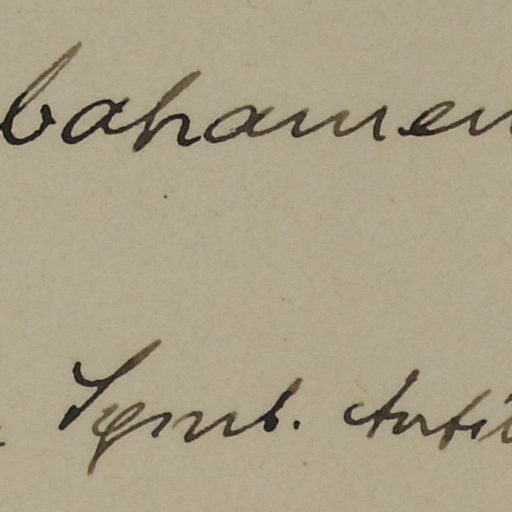 bahamen
Symb. Antil